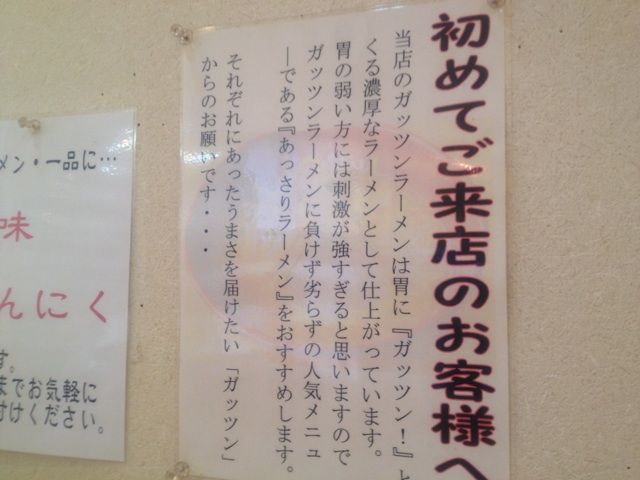 初めてご来店のお客様へ
当店のガッツンラーメンは胃に『ガッツン！』と
くる濃厚なラーメンとして仕上がっています。
胃の弱い方には刺激が強すぎると思いますので
ガッツンラーメンに負けず劣らずの人気メニュ
ーである『あっさりラーメン』をおすすめします。
それぞれにあったうまさを届けたい「ガッツン」
からのお願いです・・・
メン・一品に…
味
んにく
す。
までお気軽に
付けください。